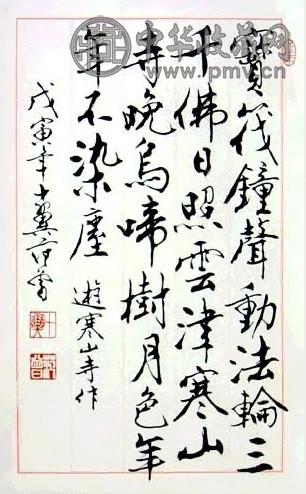 寶筏鐘聲動法輪三
千佛日照雲津寒山
寺晚烏啼樹月色年
年不染塵 遊寒山寺作
戊寅年十翼范曾
十翼
范曾
中华收藏网
www.pmv.cn